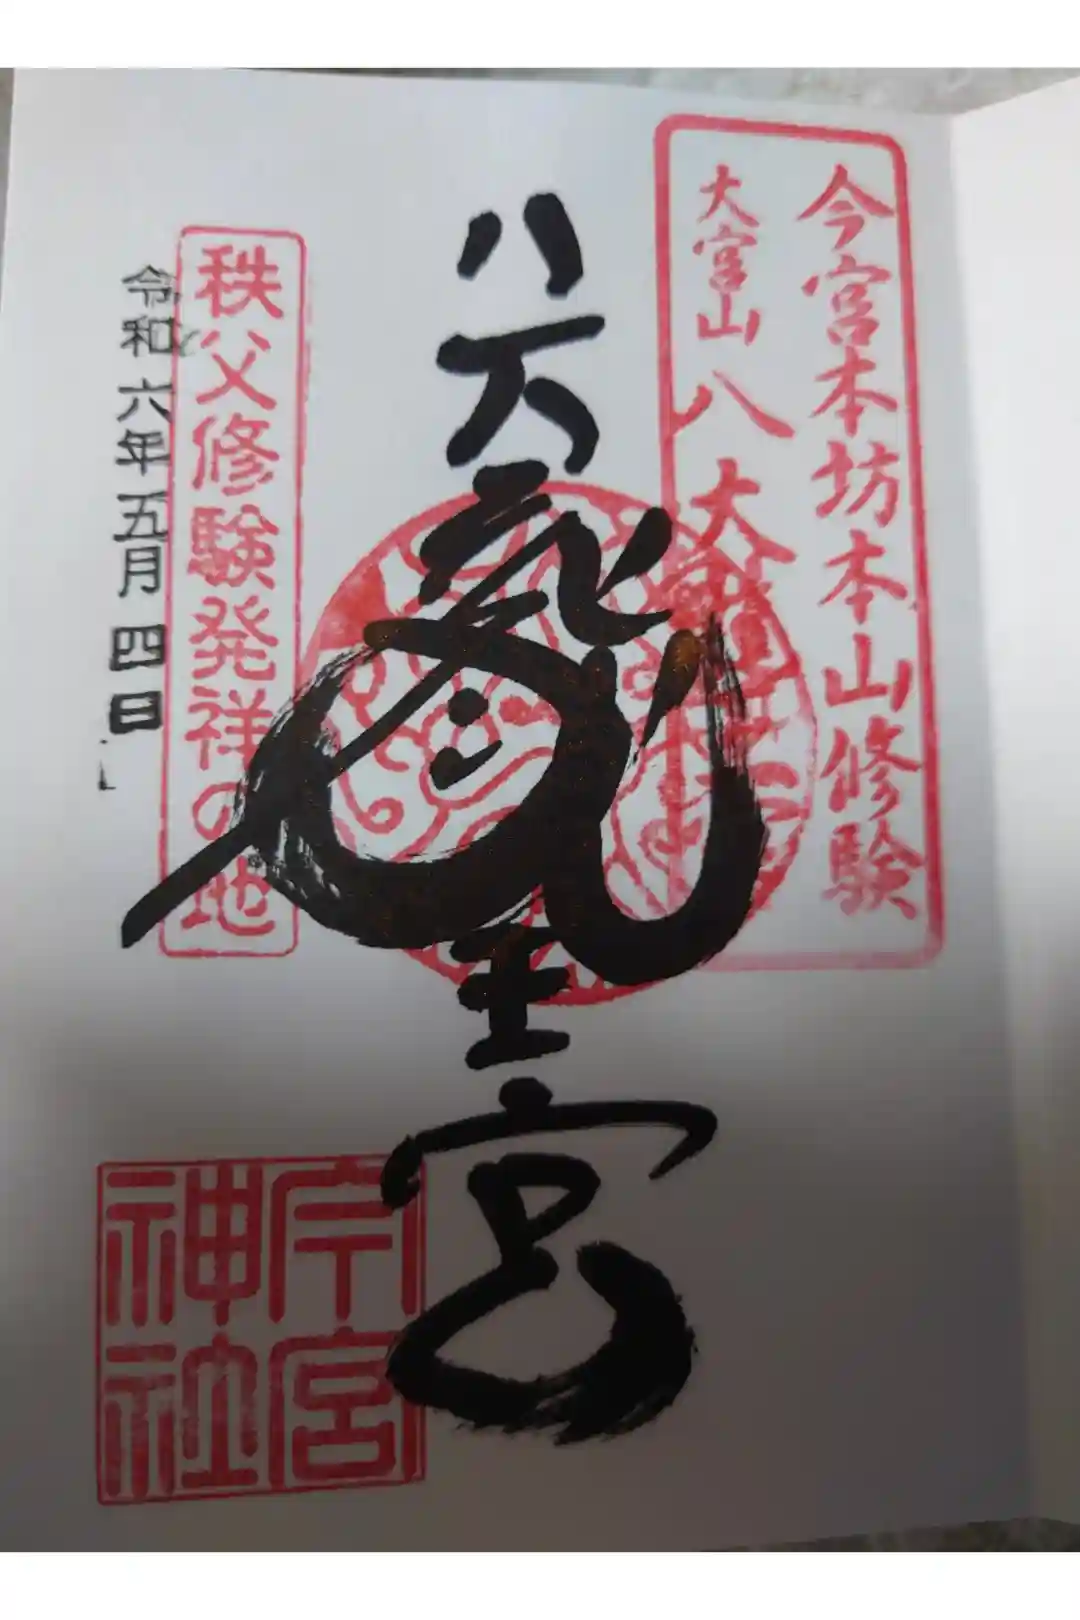 今宮本坊本山修験
大宮山 八大龍王
八大龍王宮
秩父修験発祥の地
令和六年五月四日
今宮
神社